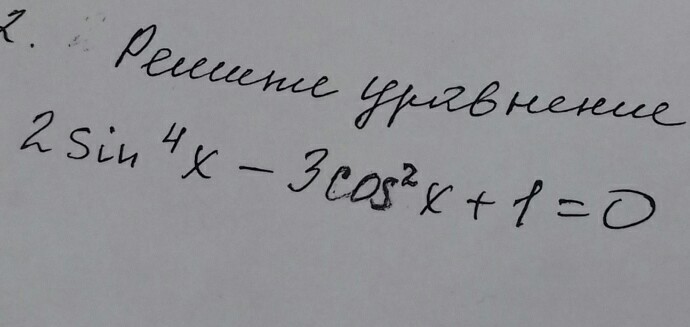 2. Решите уравнение
2 sin⁴x - 3cos²x + 1 = 0